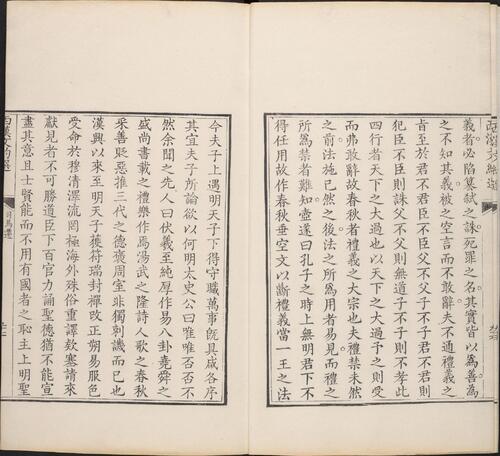 義者必陷篡弑之誅死罪之名其實皆以爲善爲
之不知其義被之空言而不敢辭夫不通禮義之
旨至於君不君臣不臣父不父子不子君不君則
犯臣不臣則誅父不父則無道子不子則不孝此
四行者天下之大過也以天下之大過予之則受
而弗敢辭故春秋者禮義之大宗也夫禮禁未然
之前法施已然之後法之所爲用者易見而禮之
所爲禁者難知壺遂曰孔子之時上無明君下不
得任用故作春秋垂空文以斷禮義當一王之法
今夫子上遇明天子下得守職萬事旣具咸各序
其宜夫子所論欲以何明太史公曰唯唯否否不
然余聞之先人曰伏羲至純厚作易八卦堯舜之
盛尚書載之禮樂作焉湯武之隆詩人歌之春秋
采善貶惡推三代之德褒周室非獨刺譏而已也
漢興以來至明天子獲符瑞封禪改正朔易服色
受命於穆清澤流罔極海外殊俗重譯欵塞請來
獻見者不可勝道臣下百官力誦聖德猶不能宣
盡其意且士賢能而不用有國者之恥主上明聖
司馬遷